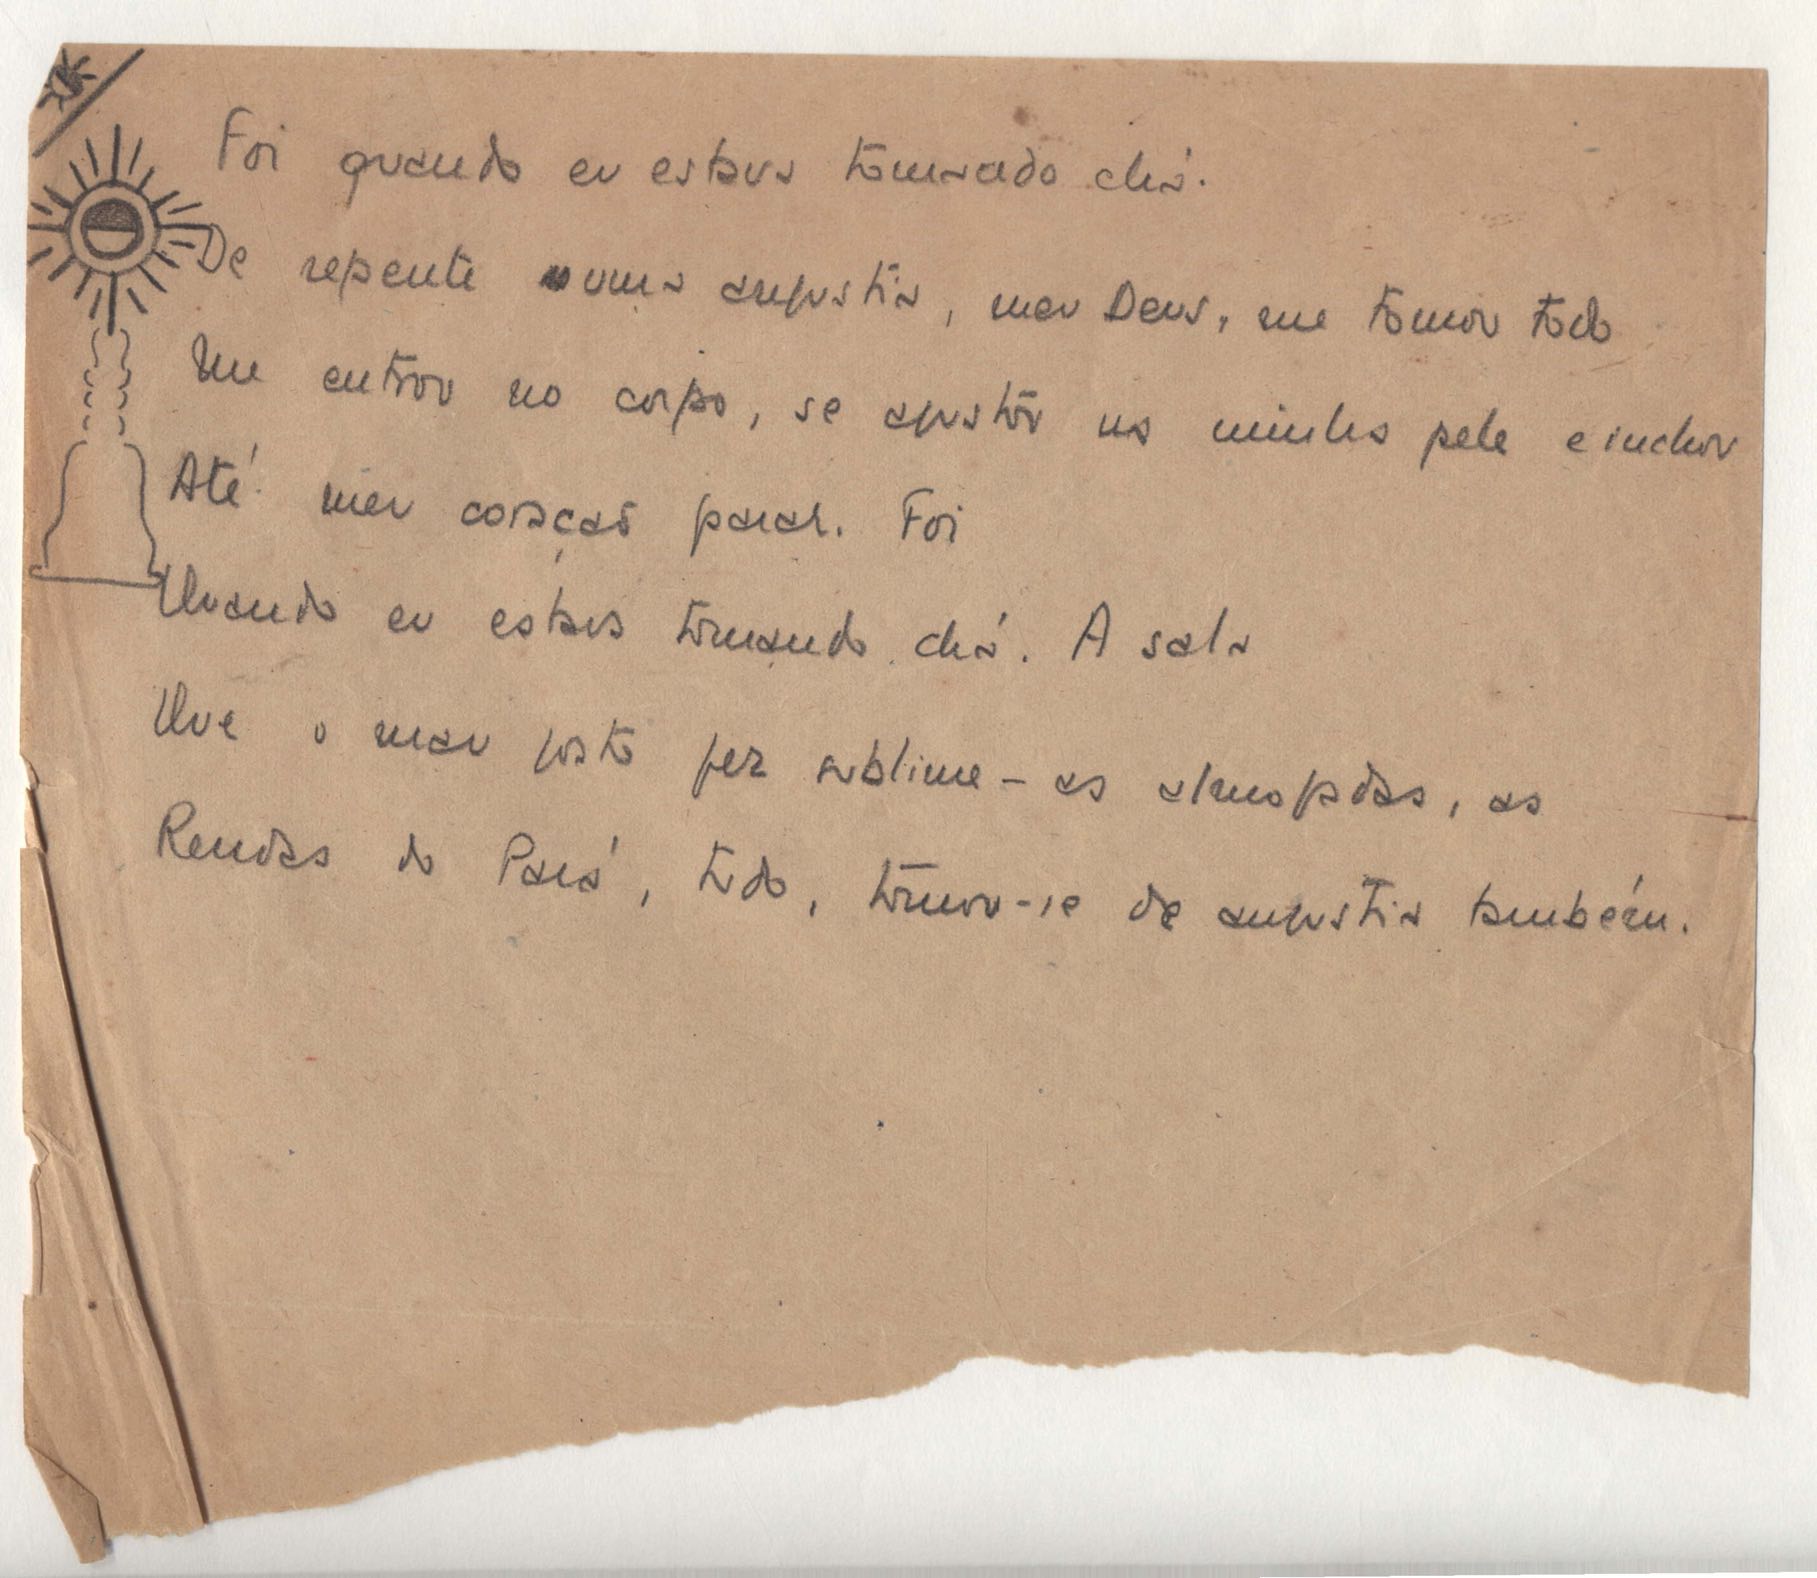 Foi quando eu estava tomando chá.
De repente uma angustia, meu Deus, me tomou todo
Me entrou no corpo, se gustou na minha pele e inchou
Até meu coração parar. Foi
Quando eu estava tomando chá. A sala
Que o mau gosto fez sublime - as almofadas, as
Rendas do Pará, tudo, tomou-se de angustia também.